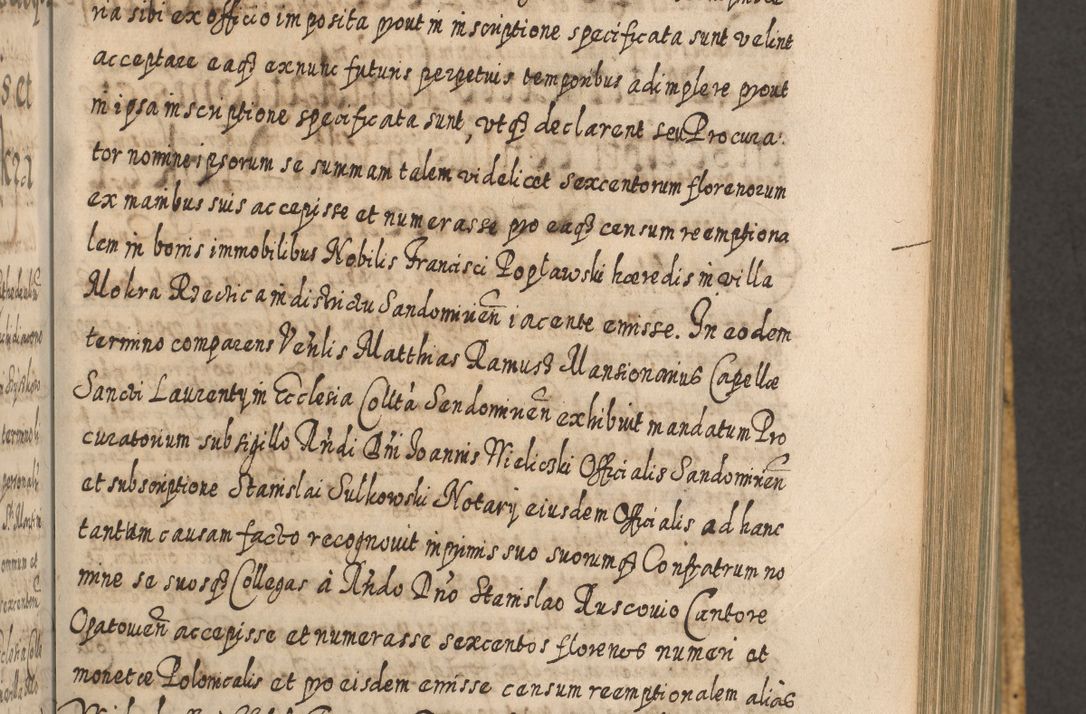 ria sibi ex officio imposita prout in inscriptione specificata sunt velint
acceptare eaqȝ ex nunc futuris perpetuis temporibus adimplere prout
in ipsa inscriptione specificata sunt, utqȝ declarent seu Procura:
tor nomine ipsorum se summam talem videlicet sexcentorum florenorum
ex manibus suis accepisse et numerasse pro eaqȝ censum reemptiona
lem in bonis immobilibus Nobilis Francisci Popławski hœredis in villa
Mokra Rzeczica in districtu Sandomirień iacente emisse. In eodem
termino comparens Veńlis Matthias Ramusȝ Mansionarius Capellæ
Sancti Laurentij in Ecclesia Colltà Sendomirień exhibuit mandatum Pro
curatorium sub sigillo Rńdi Dńi Joannis Wieliczki Officialis Sandomirień
et subscriptione Stanislai Sulkowski Notarij eiusdem Officialis ad hanc
tantum causam facto recognovit inprimis suo suorumqȝ Confratrum no
mine se suosqȝ Collegas à Rńdo Dńo Stanislao Ruscovio Cantore
Opatovień accepisse et numerasse sexcentos florenos numeri et
monetæ Polonicalis et pro eisdem emisse censum reemptionalem alias